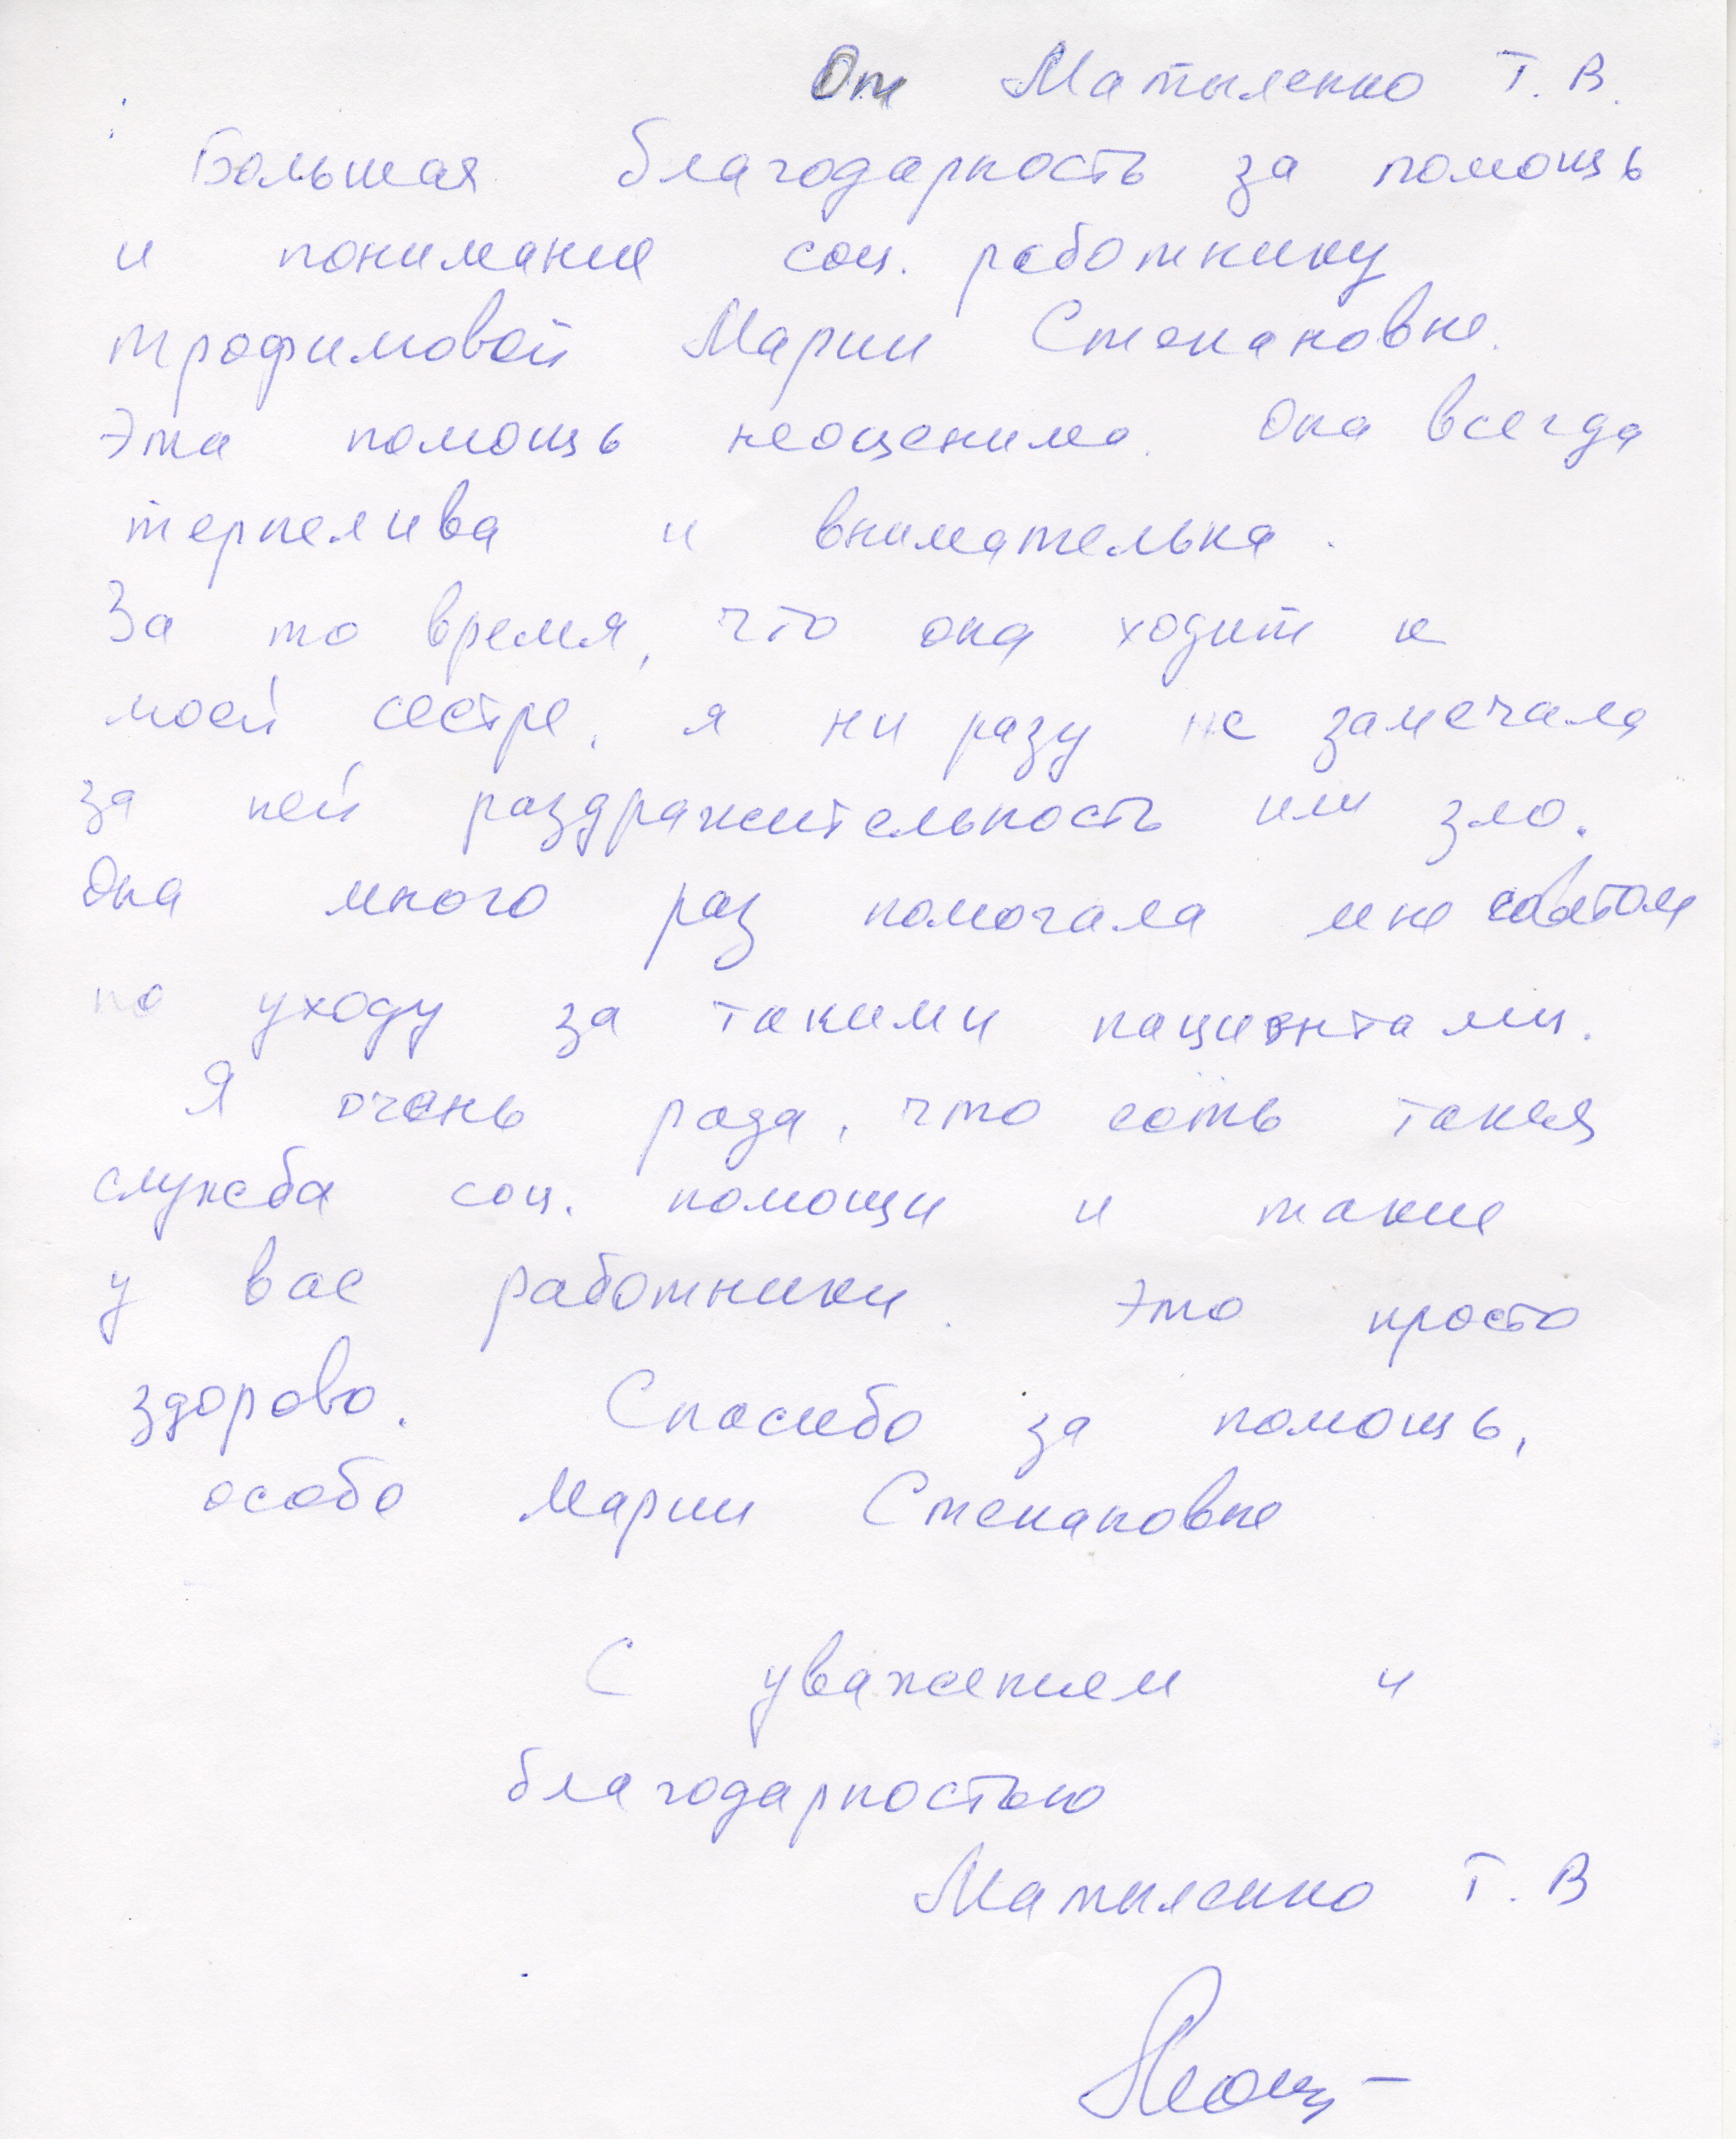 От Матыленко Т. В.
Большая благодарность за помощь
и понимание соц. работнику
трофимовой Марии Степановне.
Эта помощь неоценима. Она всегда
терпелива и внимательна.
За то время, что она ходит к
моей сестре, я ни разу не замечала
за ней раздражительность или зло.
Она много раз помогала мне советом
по уходу за такими пациентами.
Я очень рада, что есть такая
служба соц. помощи и такие
у вас работники. Это просто
здорово. Спасибо за помощь,
особо Марии Степановне
С уважением и
благодарностью
Матыленко Т. В